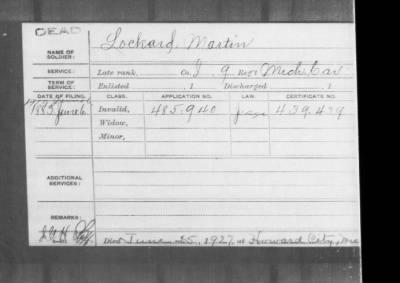 DEAD
NAME OF SOLDIER: Lockard, Martin
SERVICE: Late rank, Co. I, 9 Reg't Mich. Cav
TERM OF SERVICE: Enlisted , 1 Discharged , 1
DATE OF FILING. CLASS. APPLICATION NO. LAW. CERTIFICATE NO.
1883 June 6 Invalid, 485.940 439.439
Widow,
Minor,
ADDITIONAL SERVICES:
REMARKS:
Died June 25, 1927, at Howard City, Mich